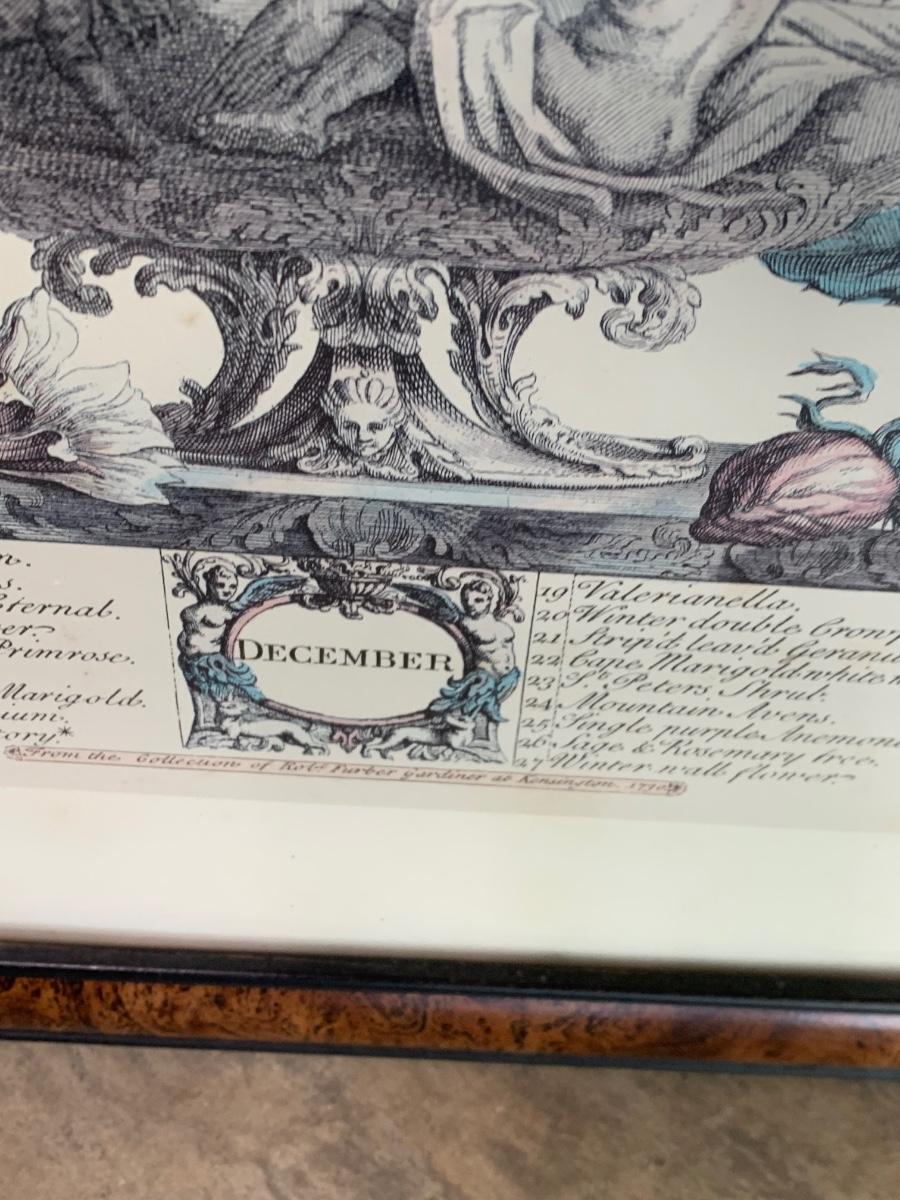 s.
Eternal.
Primrose.
Marigold.
DECEMBER
19 Valerianella.
20 Winter double Crow
21 Strip'd leav'd Gerani
22 Cape Marigold white
23 St. Peters Shrub.
24 Mountain Avens.
25 Single purple Anemon
26 Sage & Rosemary tree.
27 Winter wall flower.
From the Collection of Robt. Furber Gardiner at Kensington. 1730.